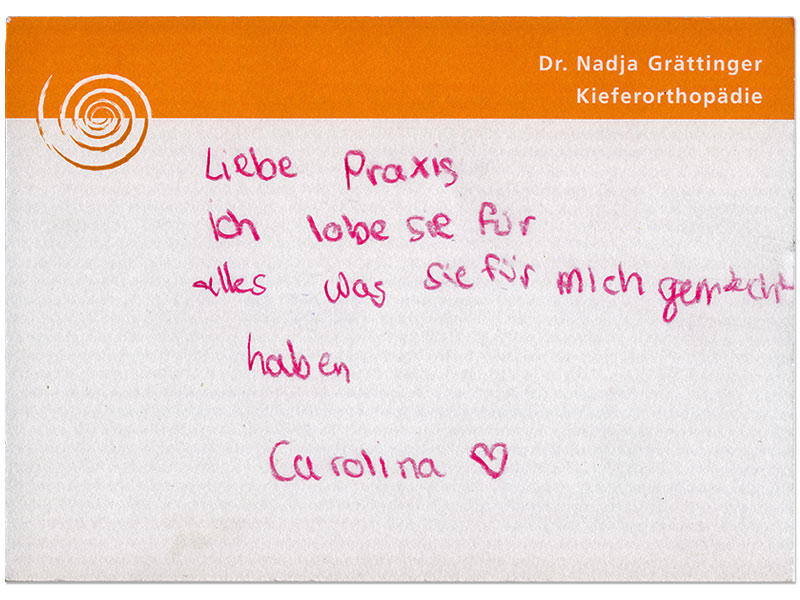 Dr. Nadja Grättinger
Kieferorthopädie
Liebe Praxis
ich lobe sie für
alles was sie für mich gemacht
haben
Carolina ♡